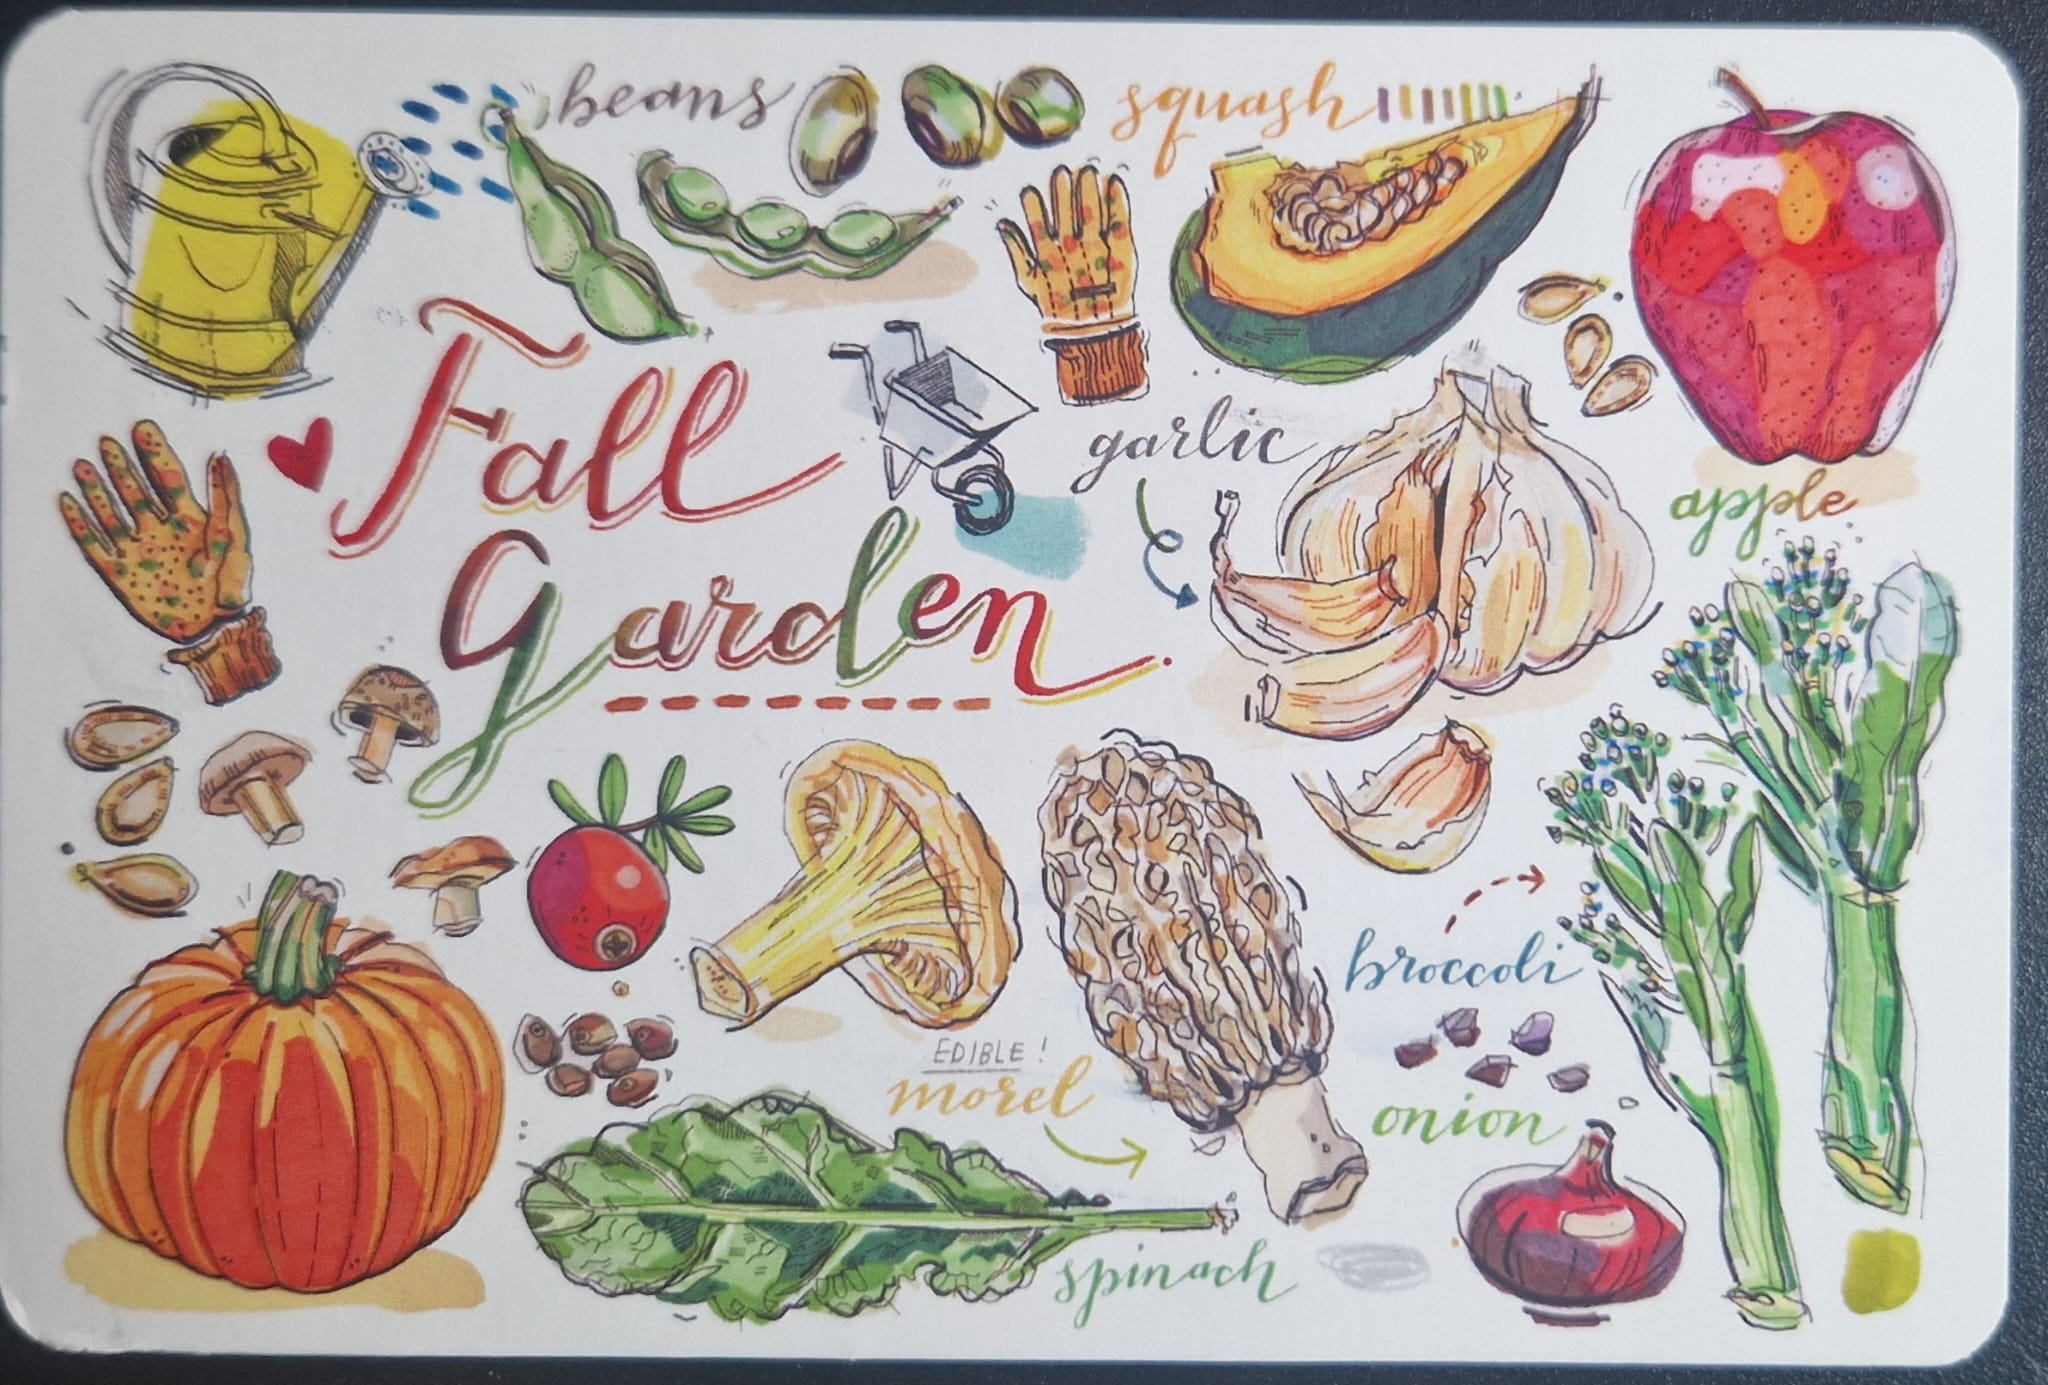 beans
squash
Fall
Garden
garlic
apple
broccoli
EDIBLE !
morel
onion
spinach